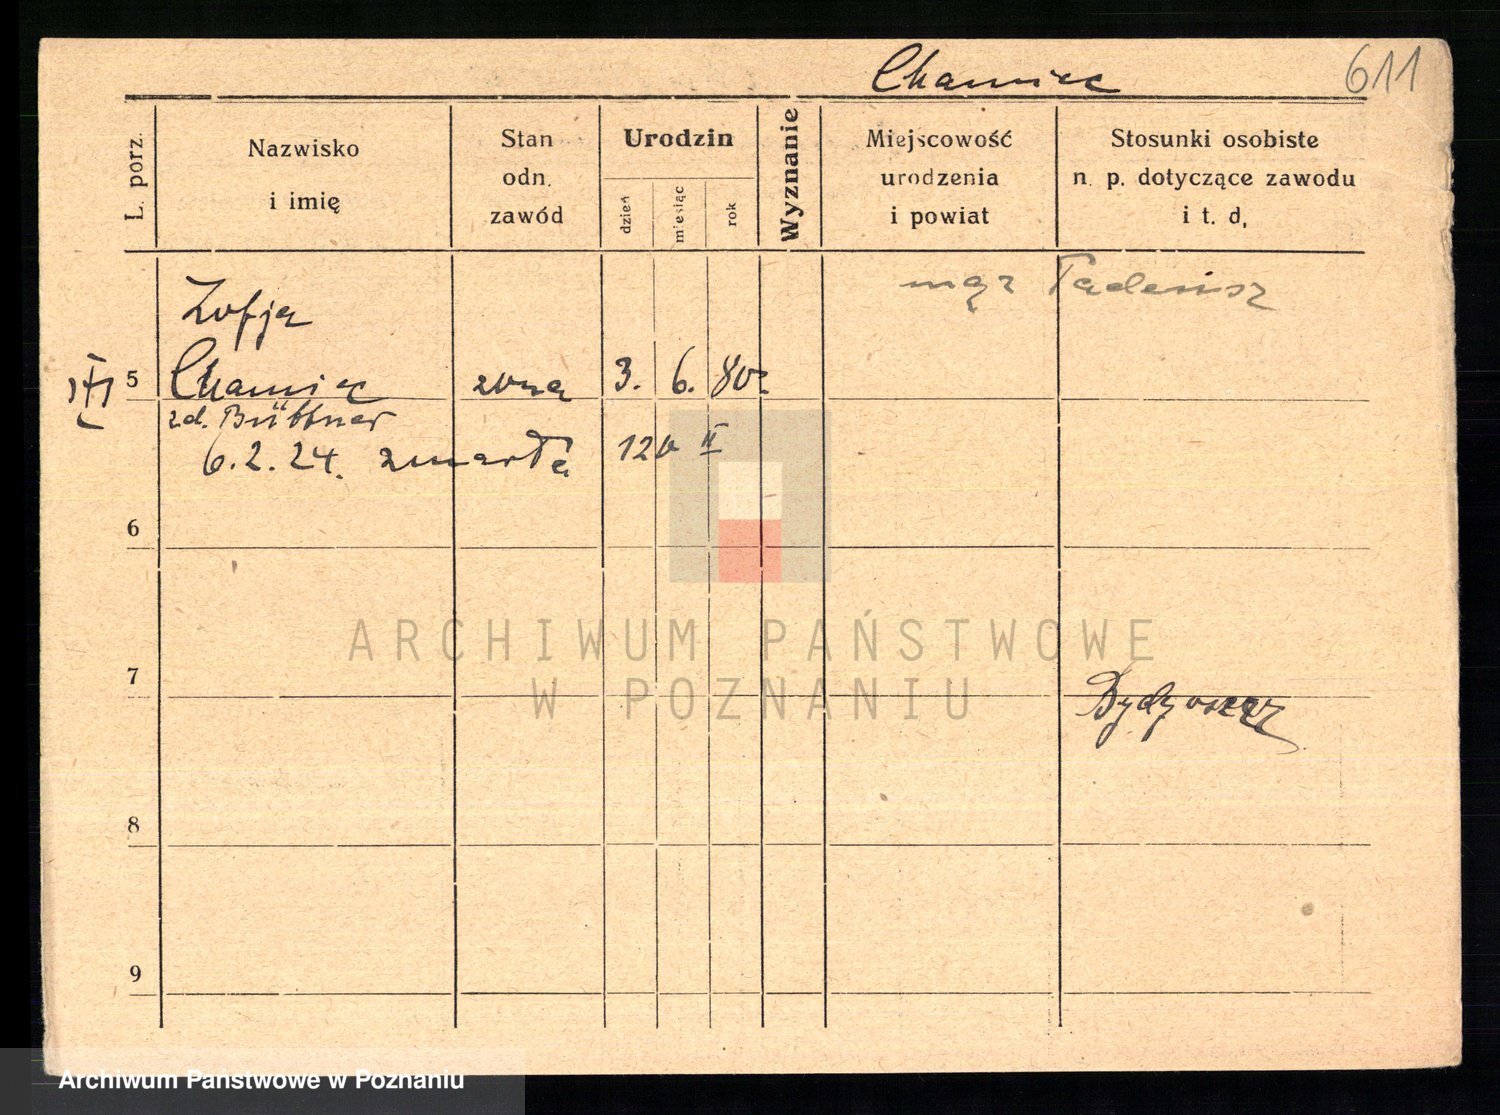 Chamiec
611
L. porz.
Nazwisko
i imię
Stan
odn.
zawód
Urodzin
dzień
miesiąc
rok
Wyznanie
Miejscowość
urodzenia
i powiat
Stosunki osobiste
n. p. dotyczące zawodu
i t. d.
mąż Tadeusz
Zofja
5 Chamiec żona 3. 6. 80
zd. Büttner
6. 2. 24. zmarła 120 II
6
7
Bydgoszcz
8
9
ARCHIWUM PAŃSTWOWE
W POZNANIU
Archiwum Państwowe w Poznaniu